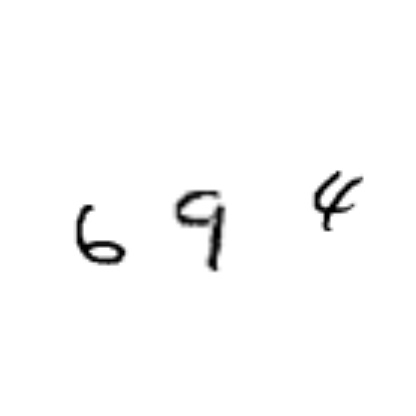 6 9 4